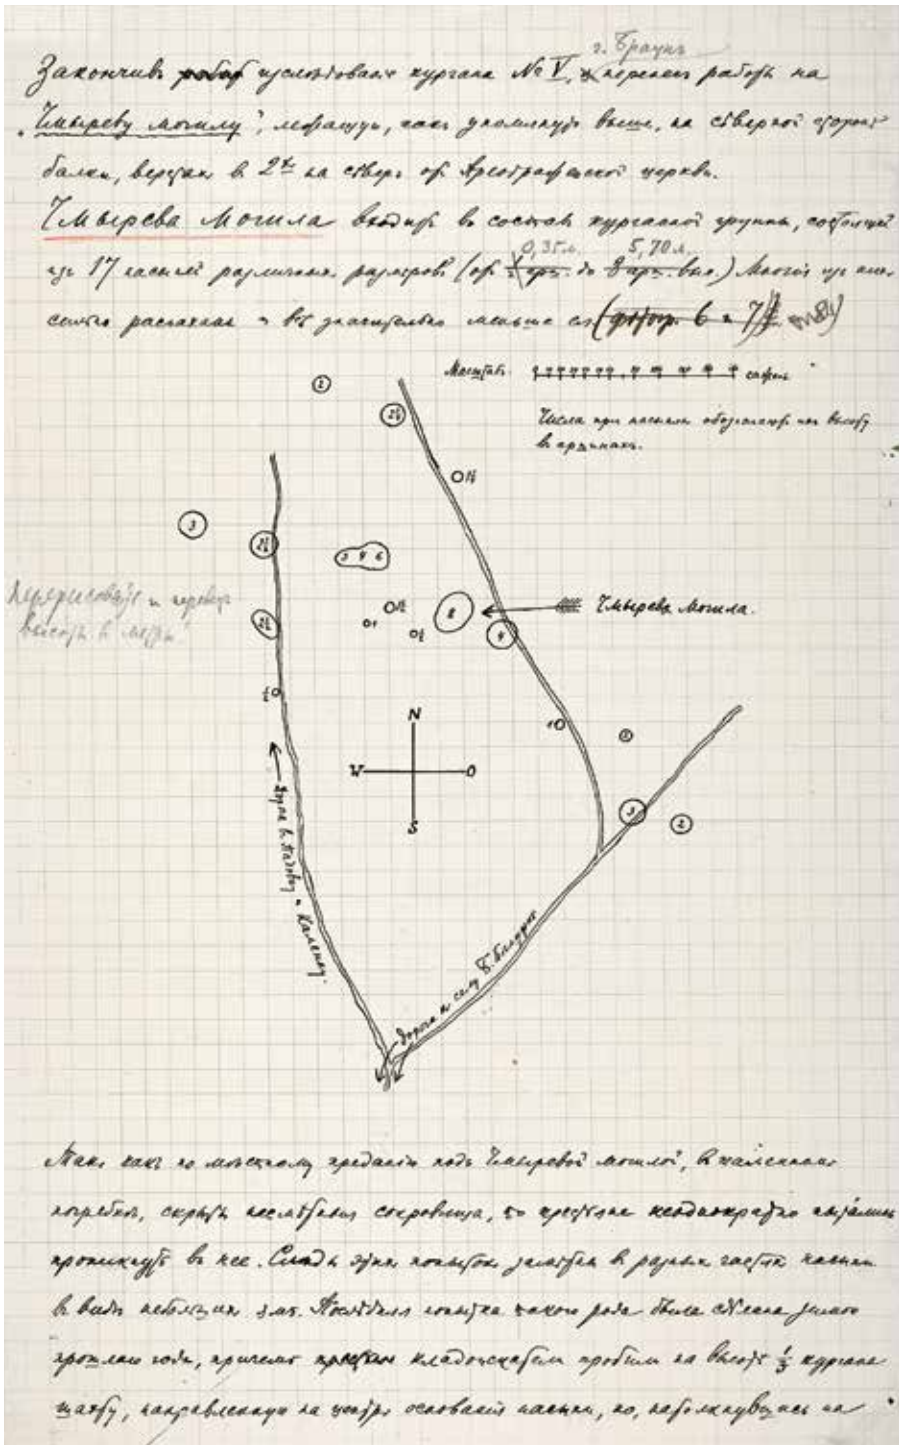 г. Браунъ
Закончивъ изслѣдованіе кургана № V, перенесъ работы на
„Чмыреву могилу“, лежащую, какъ упомянуто выше, на сѣверной сторонѣ
балки, верстахъ в 2х на сѣверъ отъ церкви.
Чмырева Могила входитъ в составъ курганной группы, состоящей
0,35 м. 5,70 м.
изъ 17 насыпей различныхъ размѣровъ (отъ ½ арш. до 8 арш. выс.) Многія изъ нихъ
сильно распаханы и въ значительно меньше (фотогр. 6 и 7)
Масштабъ сажень
Числа при насыпяхъ обозначаютъ ихъ высоту
въ аршинахъ.
2
2½
1½
3
2½
3 4 6
Перерисовать и перевести
высоты в метры
1½
8
Чмырева могила.
2½
1
½
4
½
1
N
W O
S
2
3
2
и Каменку.
Дорога к селу Б. Бѣлозерк
Такъ какъ по мѣстному преданію подъ Чмыревой могилой, в каменномъ
погребѣ, скрыты несмѣтныя сокровища, то крестьяне неоднократно пытались
проникнуть в нее. Слѣды этихъ попытокъ замѣтны в разныхъ частяхъ насыпи
в видѣ небольшихъ ямъ. Послѣдняя попытка такого рода была сдѣлана зимою
прошлаго года, причемъ кладоискатели пробили на высотѣ ⅓ кургана
шахту, направленную на центръ основанія насыпи, но, натолкнувшись на